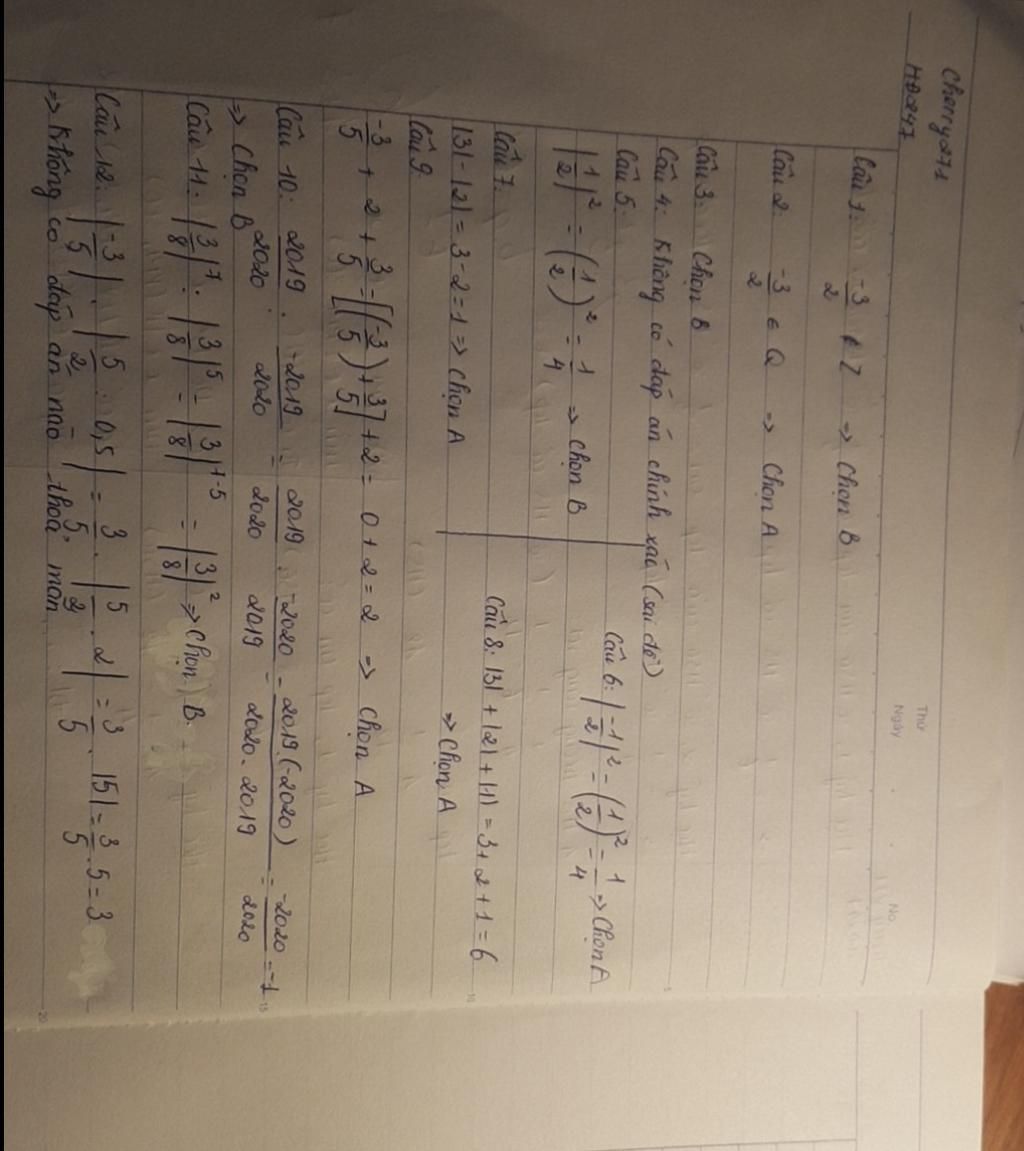 Cherry271
HĐ0247
Thứ
Ngày
No
Câu 1: -3/2 ∉ Z => Chọn B
Câu 2: -3/2 ∈ Q => Chọn A
Câu 3: Chọn B
Câu 4: Không có đáp án chính xác (sai đề)
Câu 5:
|1/2|² = (1/2)² = 1/4 => Chọn B
Câu 6: |-1/2|² = (1/2)² = 1/4 => Chọn A
Câu 7:
|3| - |2| = 3 - 2 = 1 => Chọn A
Câu 8: |3| + |2| + |1| = 3 + 2 + 1 = 6
=> Chọn A
Câu 9
-3/5 + 2 + 3/5 = [(-3/5) + 3/5] + 2 = 0 + 2 = 2 => Chọn A
Câu 10: 2019/2020 : -2019/2020 = 2019/2020 . -2020/2019 = 2019.(-2020)/2020.2019 = -2020/2020 = -1
=> Chọn B
Câu 11: |3/8|⁷ : |3/8|⁵ = |3/8|⁷⁻⁵ = |3/8|² => Chọn B.
Câu 12: |-3/5| . |5/2 : 0,5| = 3/5 . |5/2 . 2| = 3/5 . |5| = 3/5 . 5 = 3
=> Không có đáp án nào thoả mãn
5
10
15
20